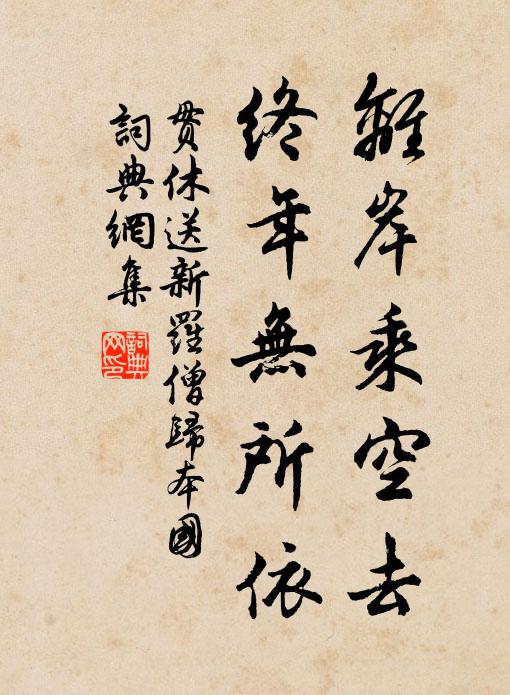 離岸乘空去
終年無所依
貫休送新羅僧歸本國
詞典網集
詞典網印